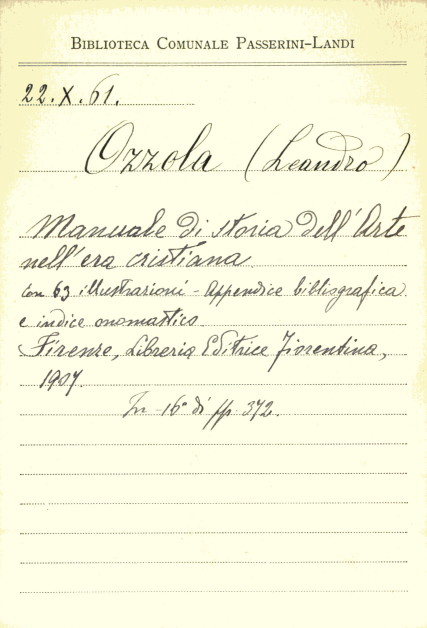 BIBLIOTECA COMUNALE PASSERINI-LANDI
22.X.61.
Ozzola (Leandro)
Manuale di storia dell'Arte
nell'era cristiana
Con 63 illustrazioni - Appendice bibliografica
e indice onomastico
Firenze, Libreria Editrice Fiorentina,
1907.
In -16° di pp 372.